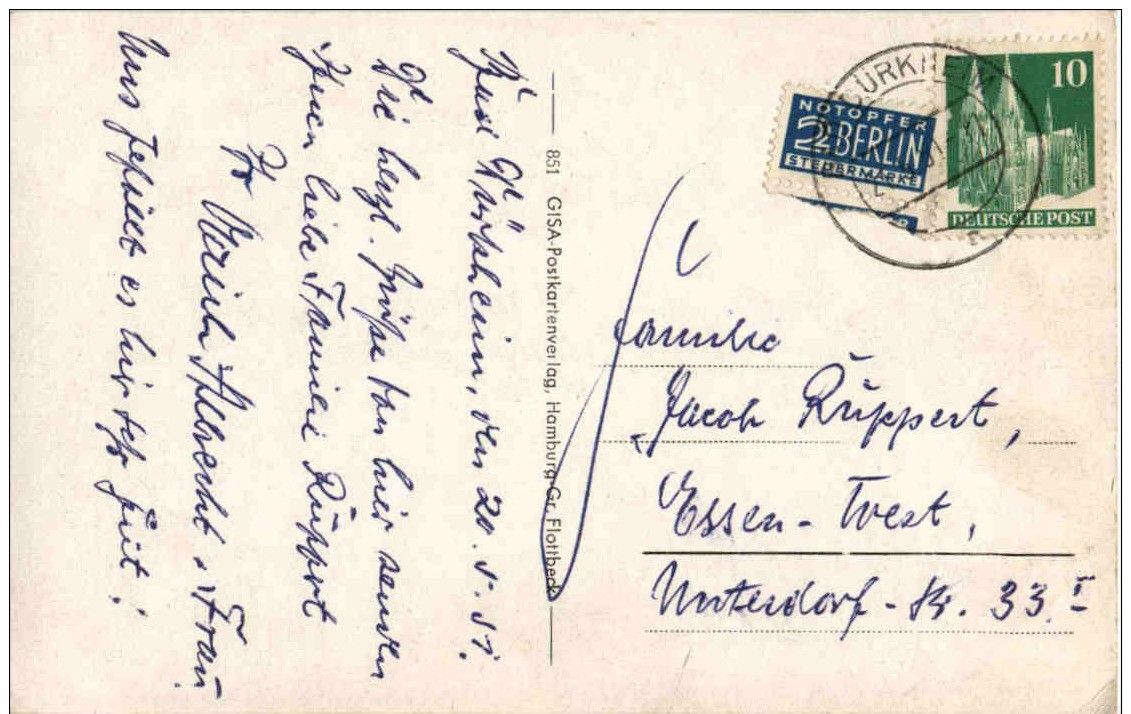 Bad Dürkheim, den 20.5.51.
Die herzl. Grüße von hier senden
Ihnen liebe Familie Ruppert
Ihr Albrecht u. Frau
Uns gefällt es hier sehr gut!
851 GISA-Postkartenverlag, Hamburg-Gr. Flottbek
DÜRKHEIM
NOTOPFER
2 BERLIN
STEUERMARKE
10
DEUTSCHE POST
Familie
Jacob Ruppert,
Essen-West,
Unterdorf-Str. 33 I